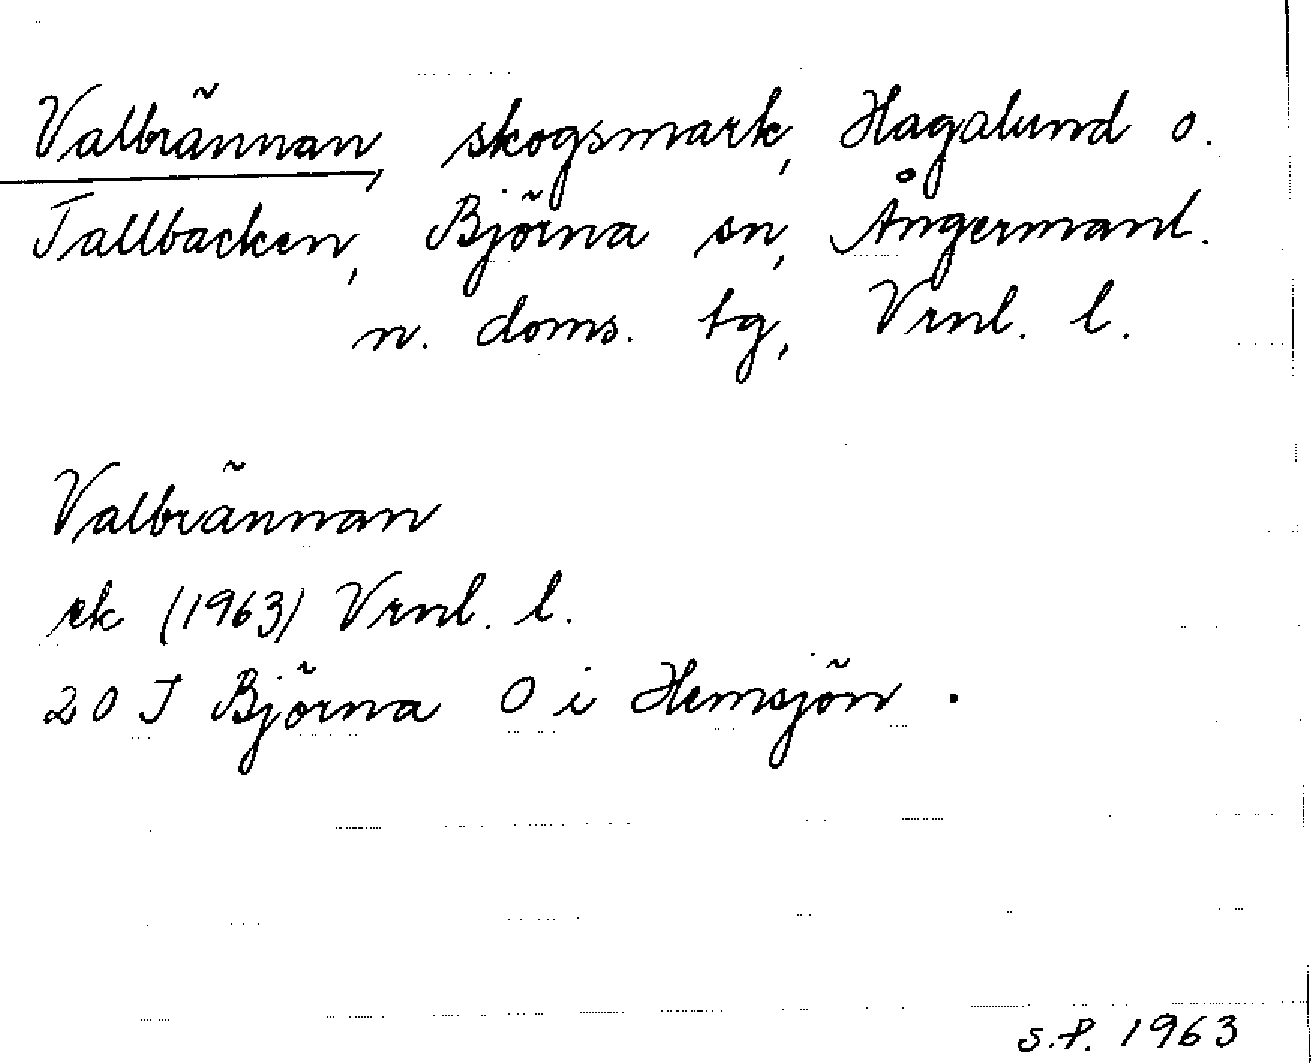 Valbrännan, skogsmark, Hagalund o.
Tallbacken, Björna sn, Ångermanl.
n. doms. tg, Vrnl. l.
Valbrännan
rk (1963) Vrnl. l.
20 J Björna O i Hemsjön.
S.P. 1963